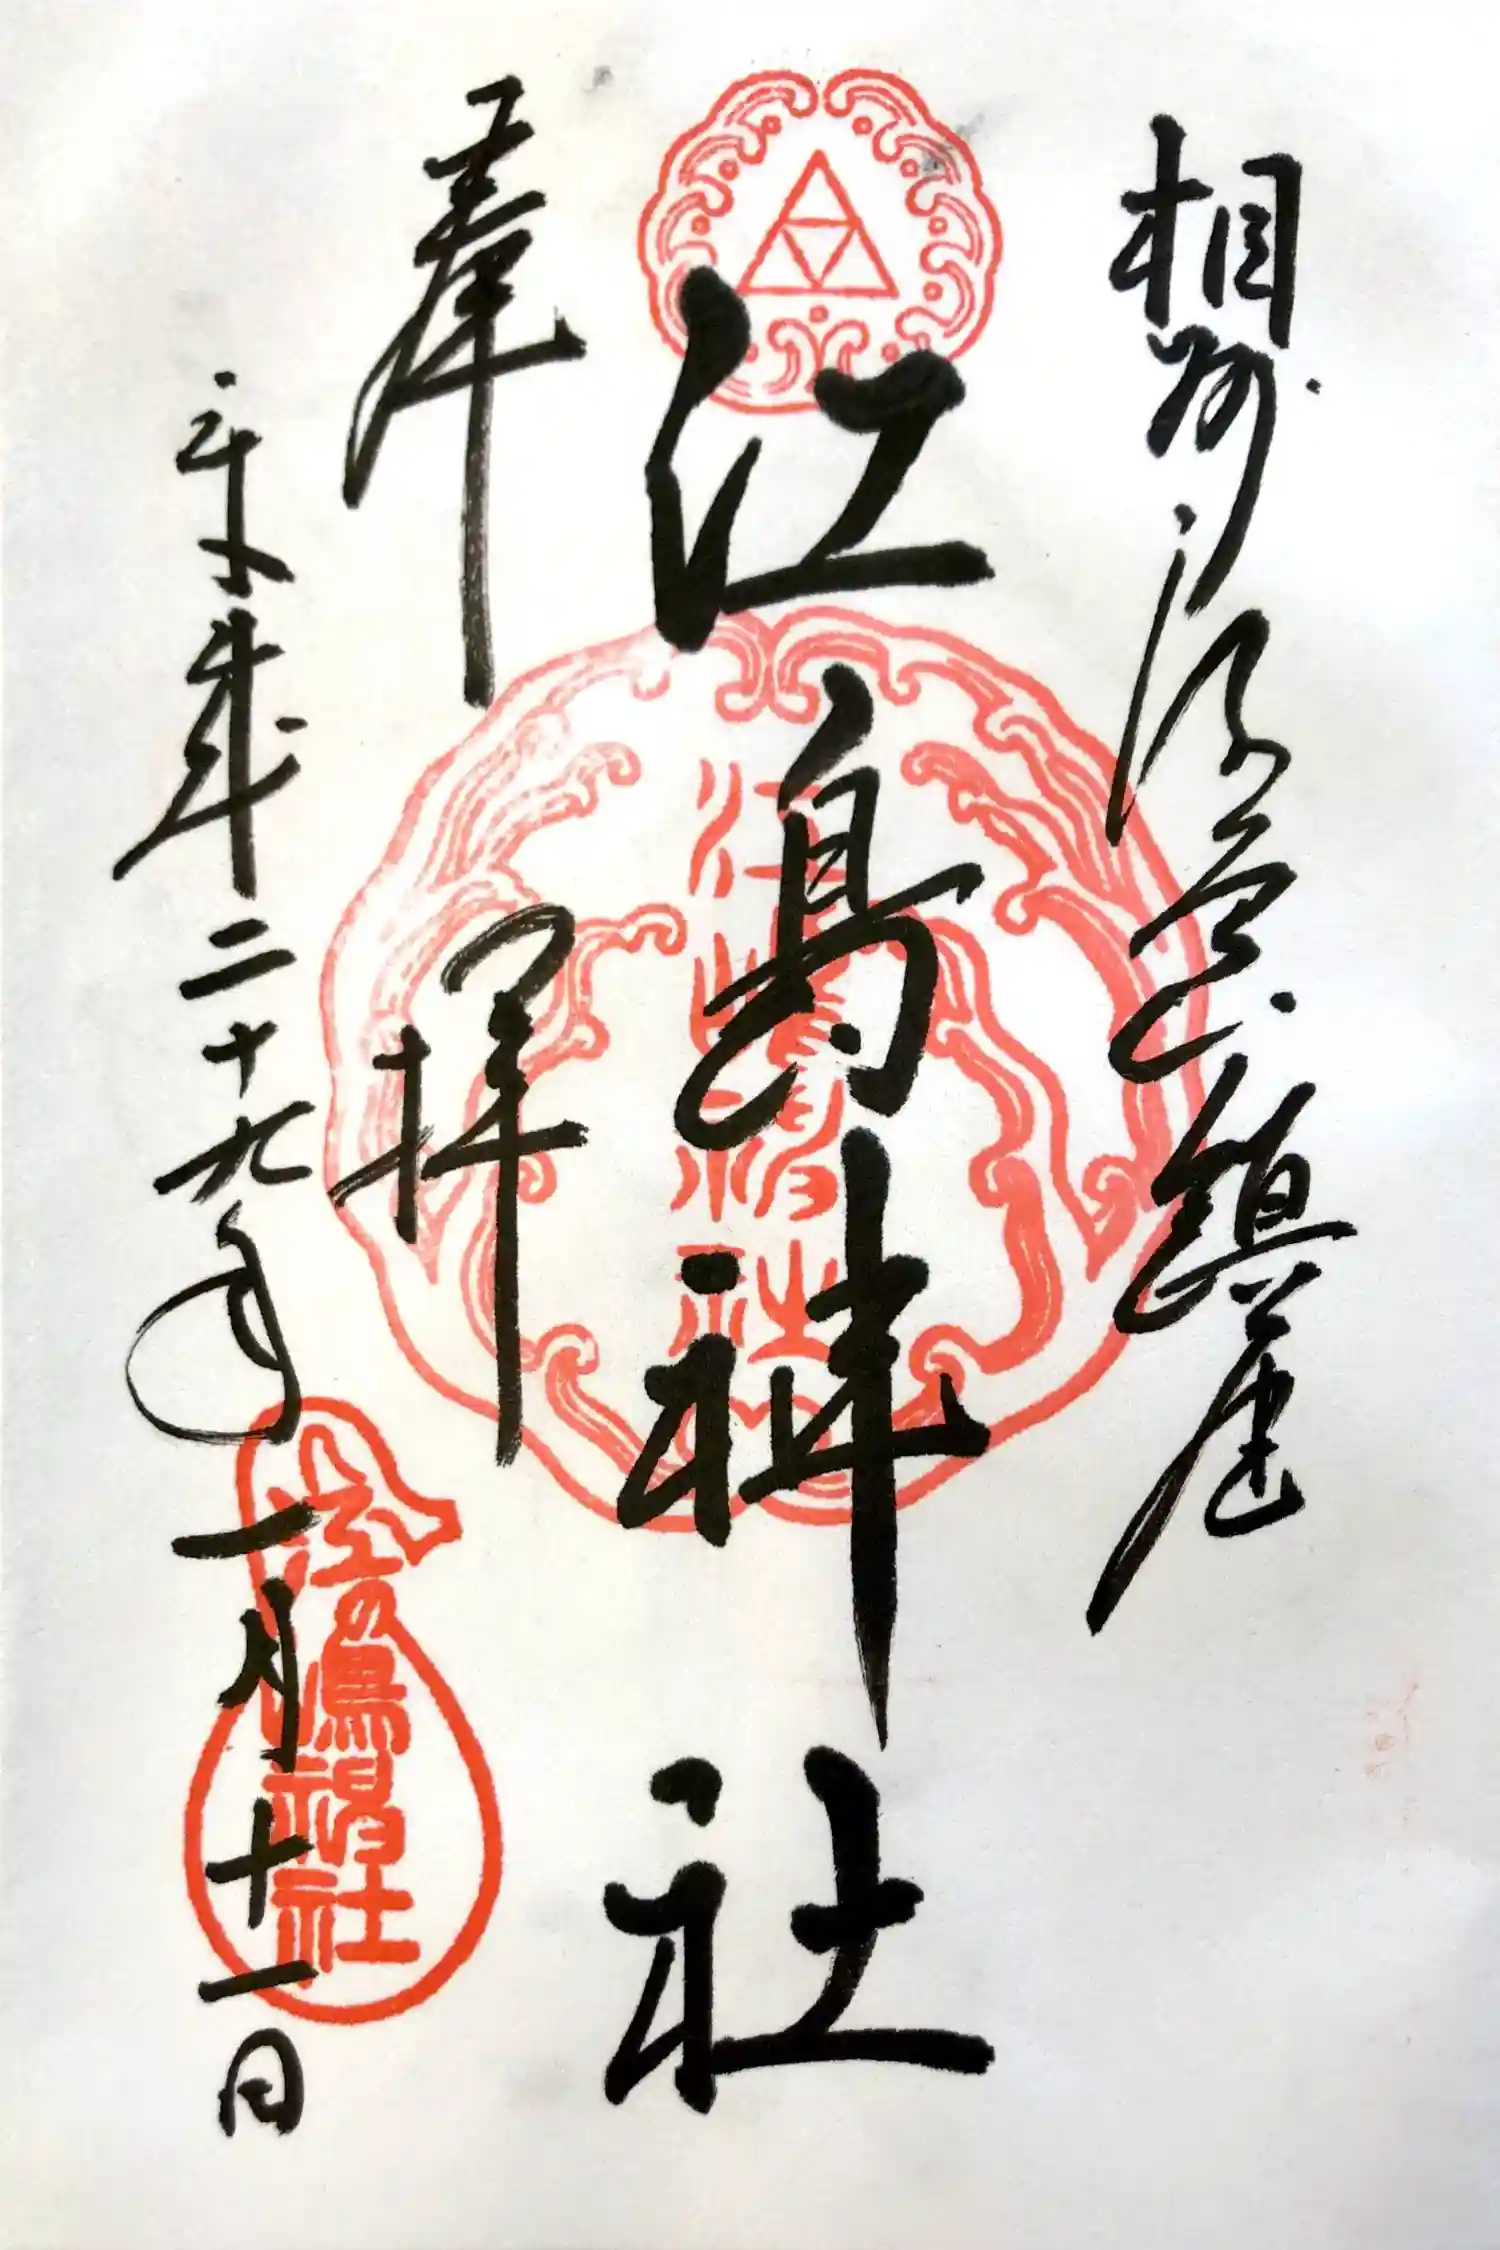 相州江ノ島鎮座
江島神社
奉拝
平成二十九年一月十一日
江島神社
江の嶋神社